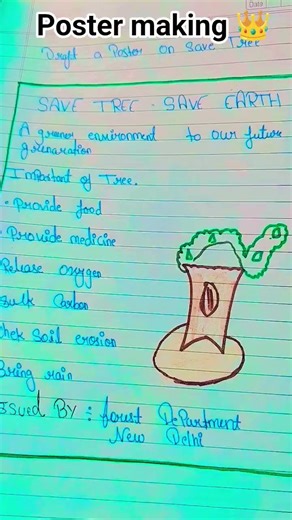 Poster making 👑
Draft a Poster on Save Tree
Date
SAVE TREE - SAVE EARTH
A greener environment to our future
grenaration
Important of Tree.
• Provide food
• Provide medicine
Release oxygen
Sulk Carbon
Chek Soil erosion
Bring rain
Issued By : forust DePartment
New Delhi